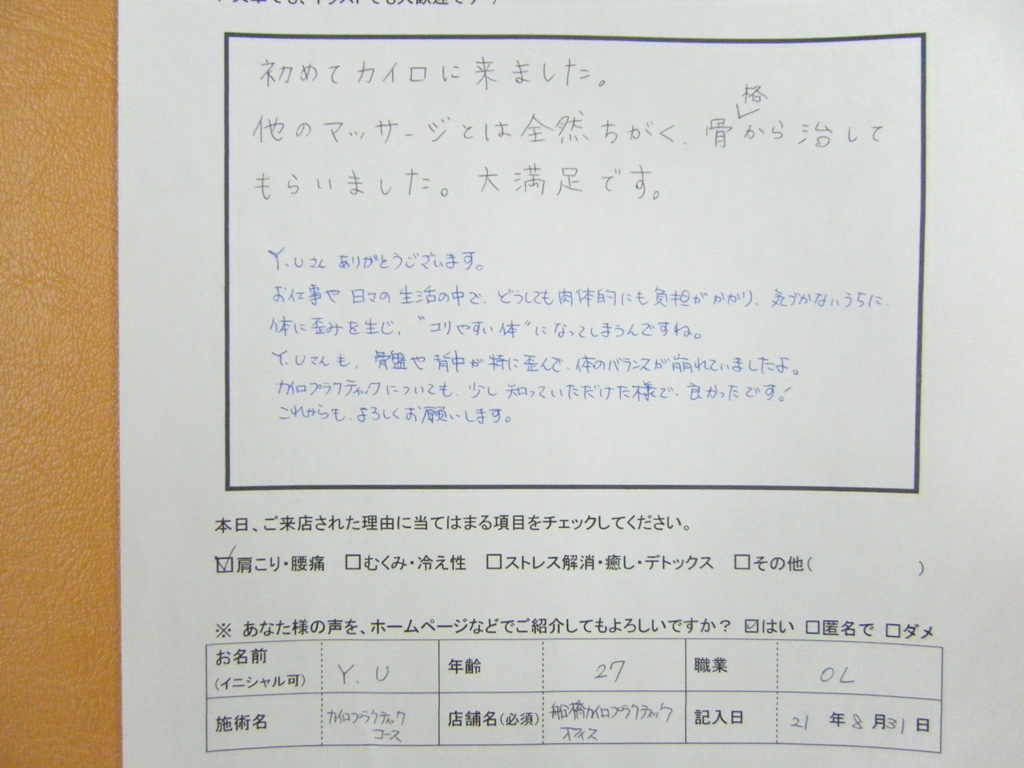 初めてカイロに来ました。
他のマッサージとは全然ちがく、骨格から治して
もらいました。大満足です。
Y.Uさん ありがとうございます。
お仕事や日々の生活の中で、どうしても肉体的にも負担がかかり、気づかないうちに、
体に歪みを生じ、“コリやすい体”になってしまうんですね。
Y.Uさんも、骨盤や背中が特に歪んで、体のバランスが崩れていましたよ。
カイロプラクティックについても、少し知っていただけた様で、良かったです!
これからも、よろしくお願いします。
本日、ご来店された理由に当てはまる項目をチェックしてください。
☑肩こり・腰痛 □むくみ・冷え性 □ストレス解消・癒し・デトックス □その他( )
※ あなた様の声を、ホームページなどでご紹介してもよろしいですか? ☑はい □匿名で □ダメ
お名前(イニシャル可) Y.U 年齢 27 職業 OL
施術名 カイロプラクティックコース 店舗名(必須) 船橋カイロプラクティックオフィス 記入日 21 年 8 月 31 日